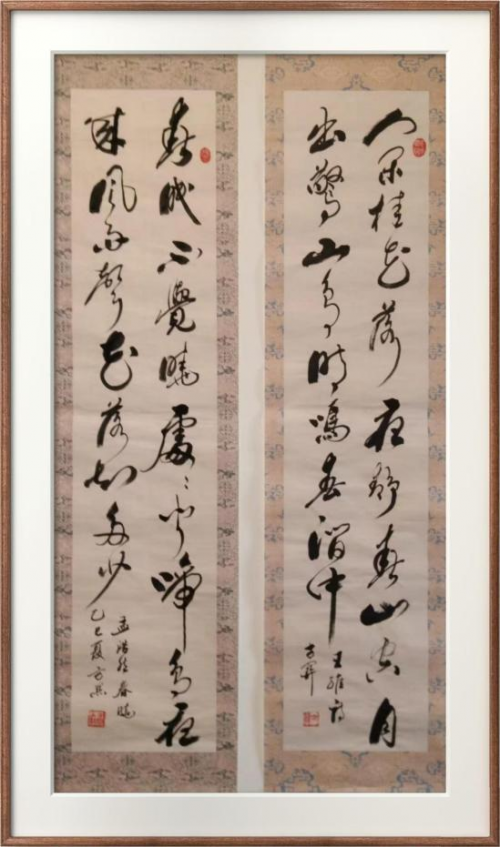 人闲桂花落夜静春山空月
出驚山鸟时鸣春澗中
王维诗
春眠不覺曉處〻闻啼鸟夜
来风雨聲花落知多少
孟浩然春曉
乙巳夏方